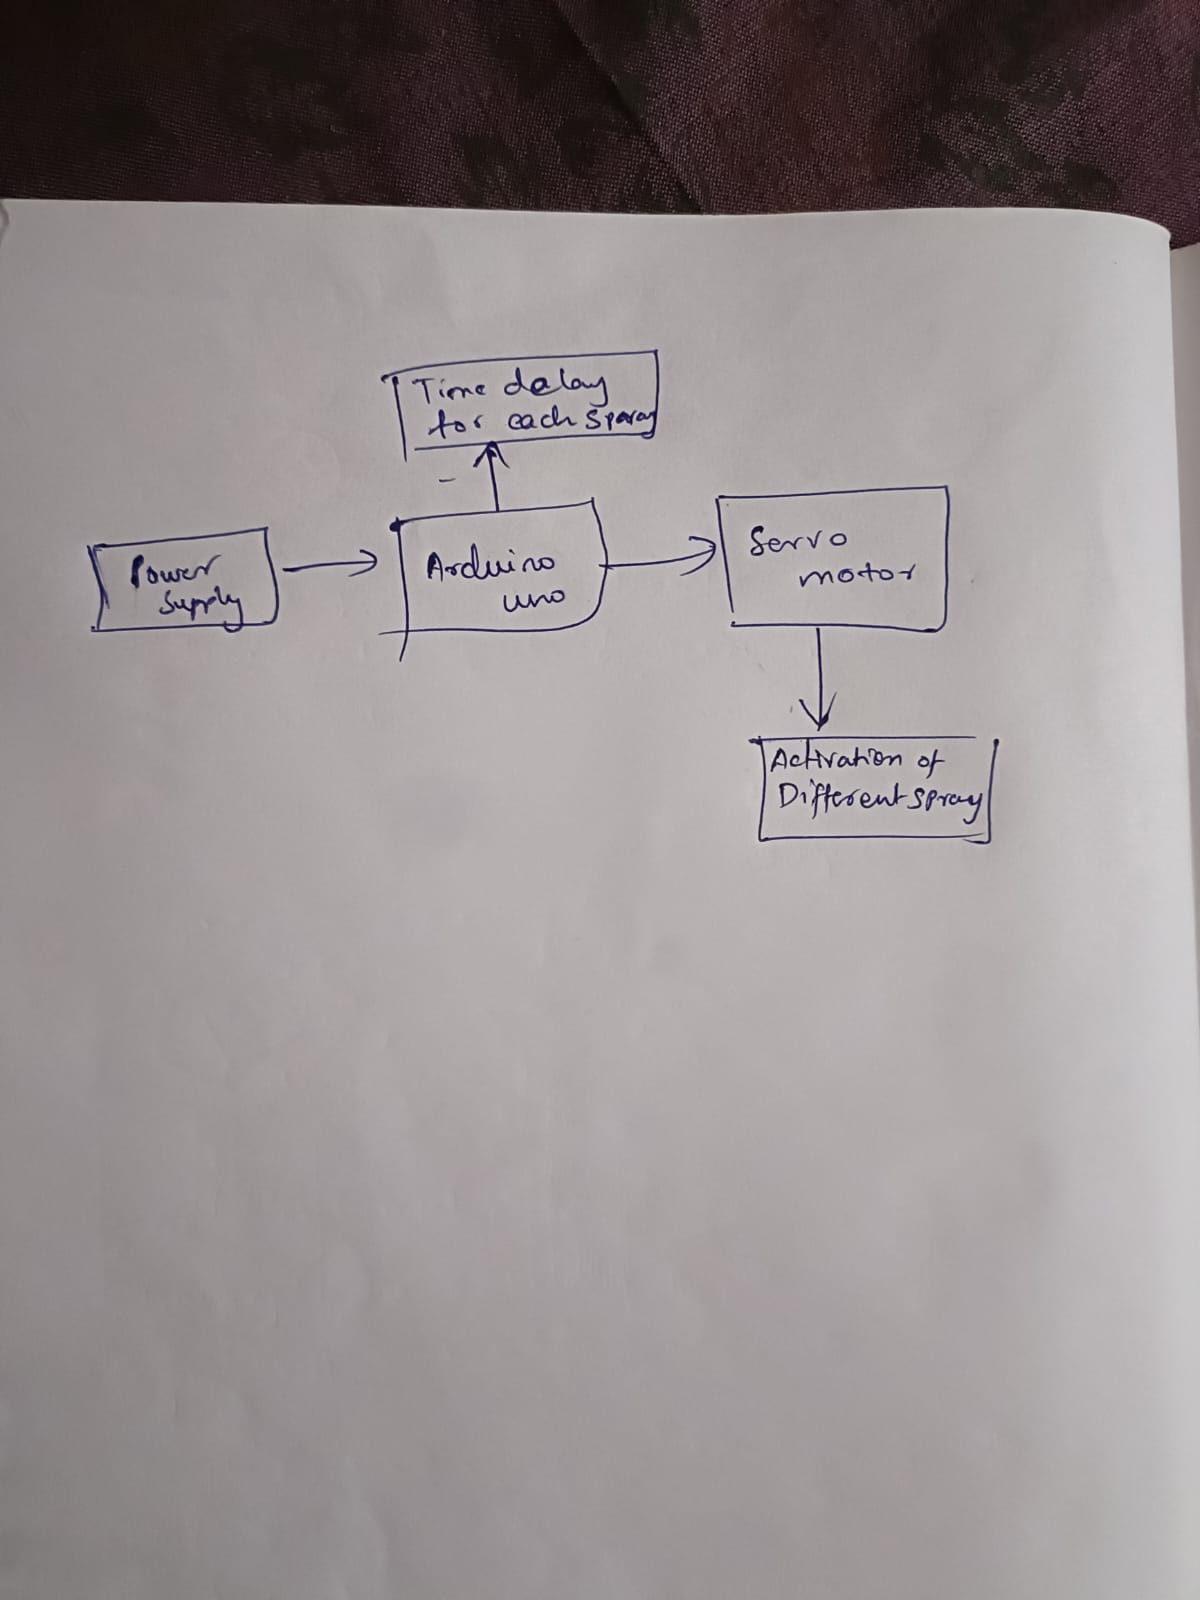 Time delay
for each sparay
Power
Supply
Arduino
uno
Servo
motor
Activation of
Different spray